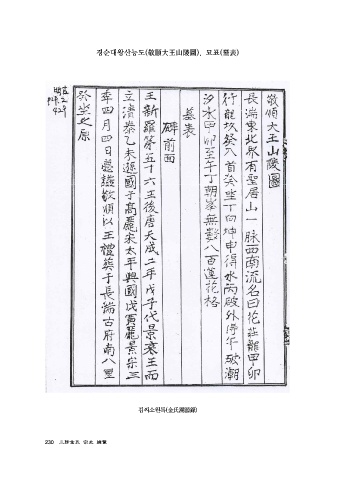 경순대왕산능도(敬順大王山陵圖), 묘표(墓表)
敬順大王山陵圖
長湍東北界有聖居山一脉西南流名曰花莊龍甲卯
行龍坎癸入首癸坐丁向坤申得水丙破外得午破潮
汐水甲卯至午丁朝峯無數八百蓮花格
墓表
碑前面
王新羅第五十六王後唐天成二年戊子代景哀王而
立淸泰乙未遜國于高麗宋太平興國戊寅麗景宗三
年四月四日薨謚敬順以王禮葬于長湍古府南八里
癸坐之原
김씨소원록(金氏溯源錄)
230 三陟金氏 宗史 總覽